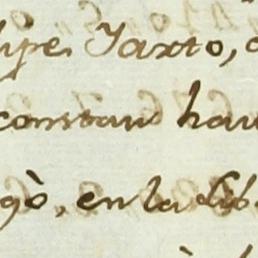 lipe Jaxto,
constan hau
gò, en la lib